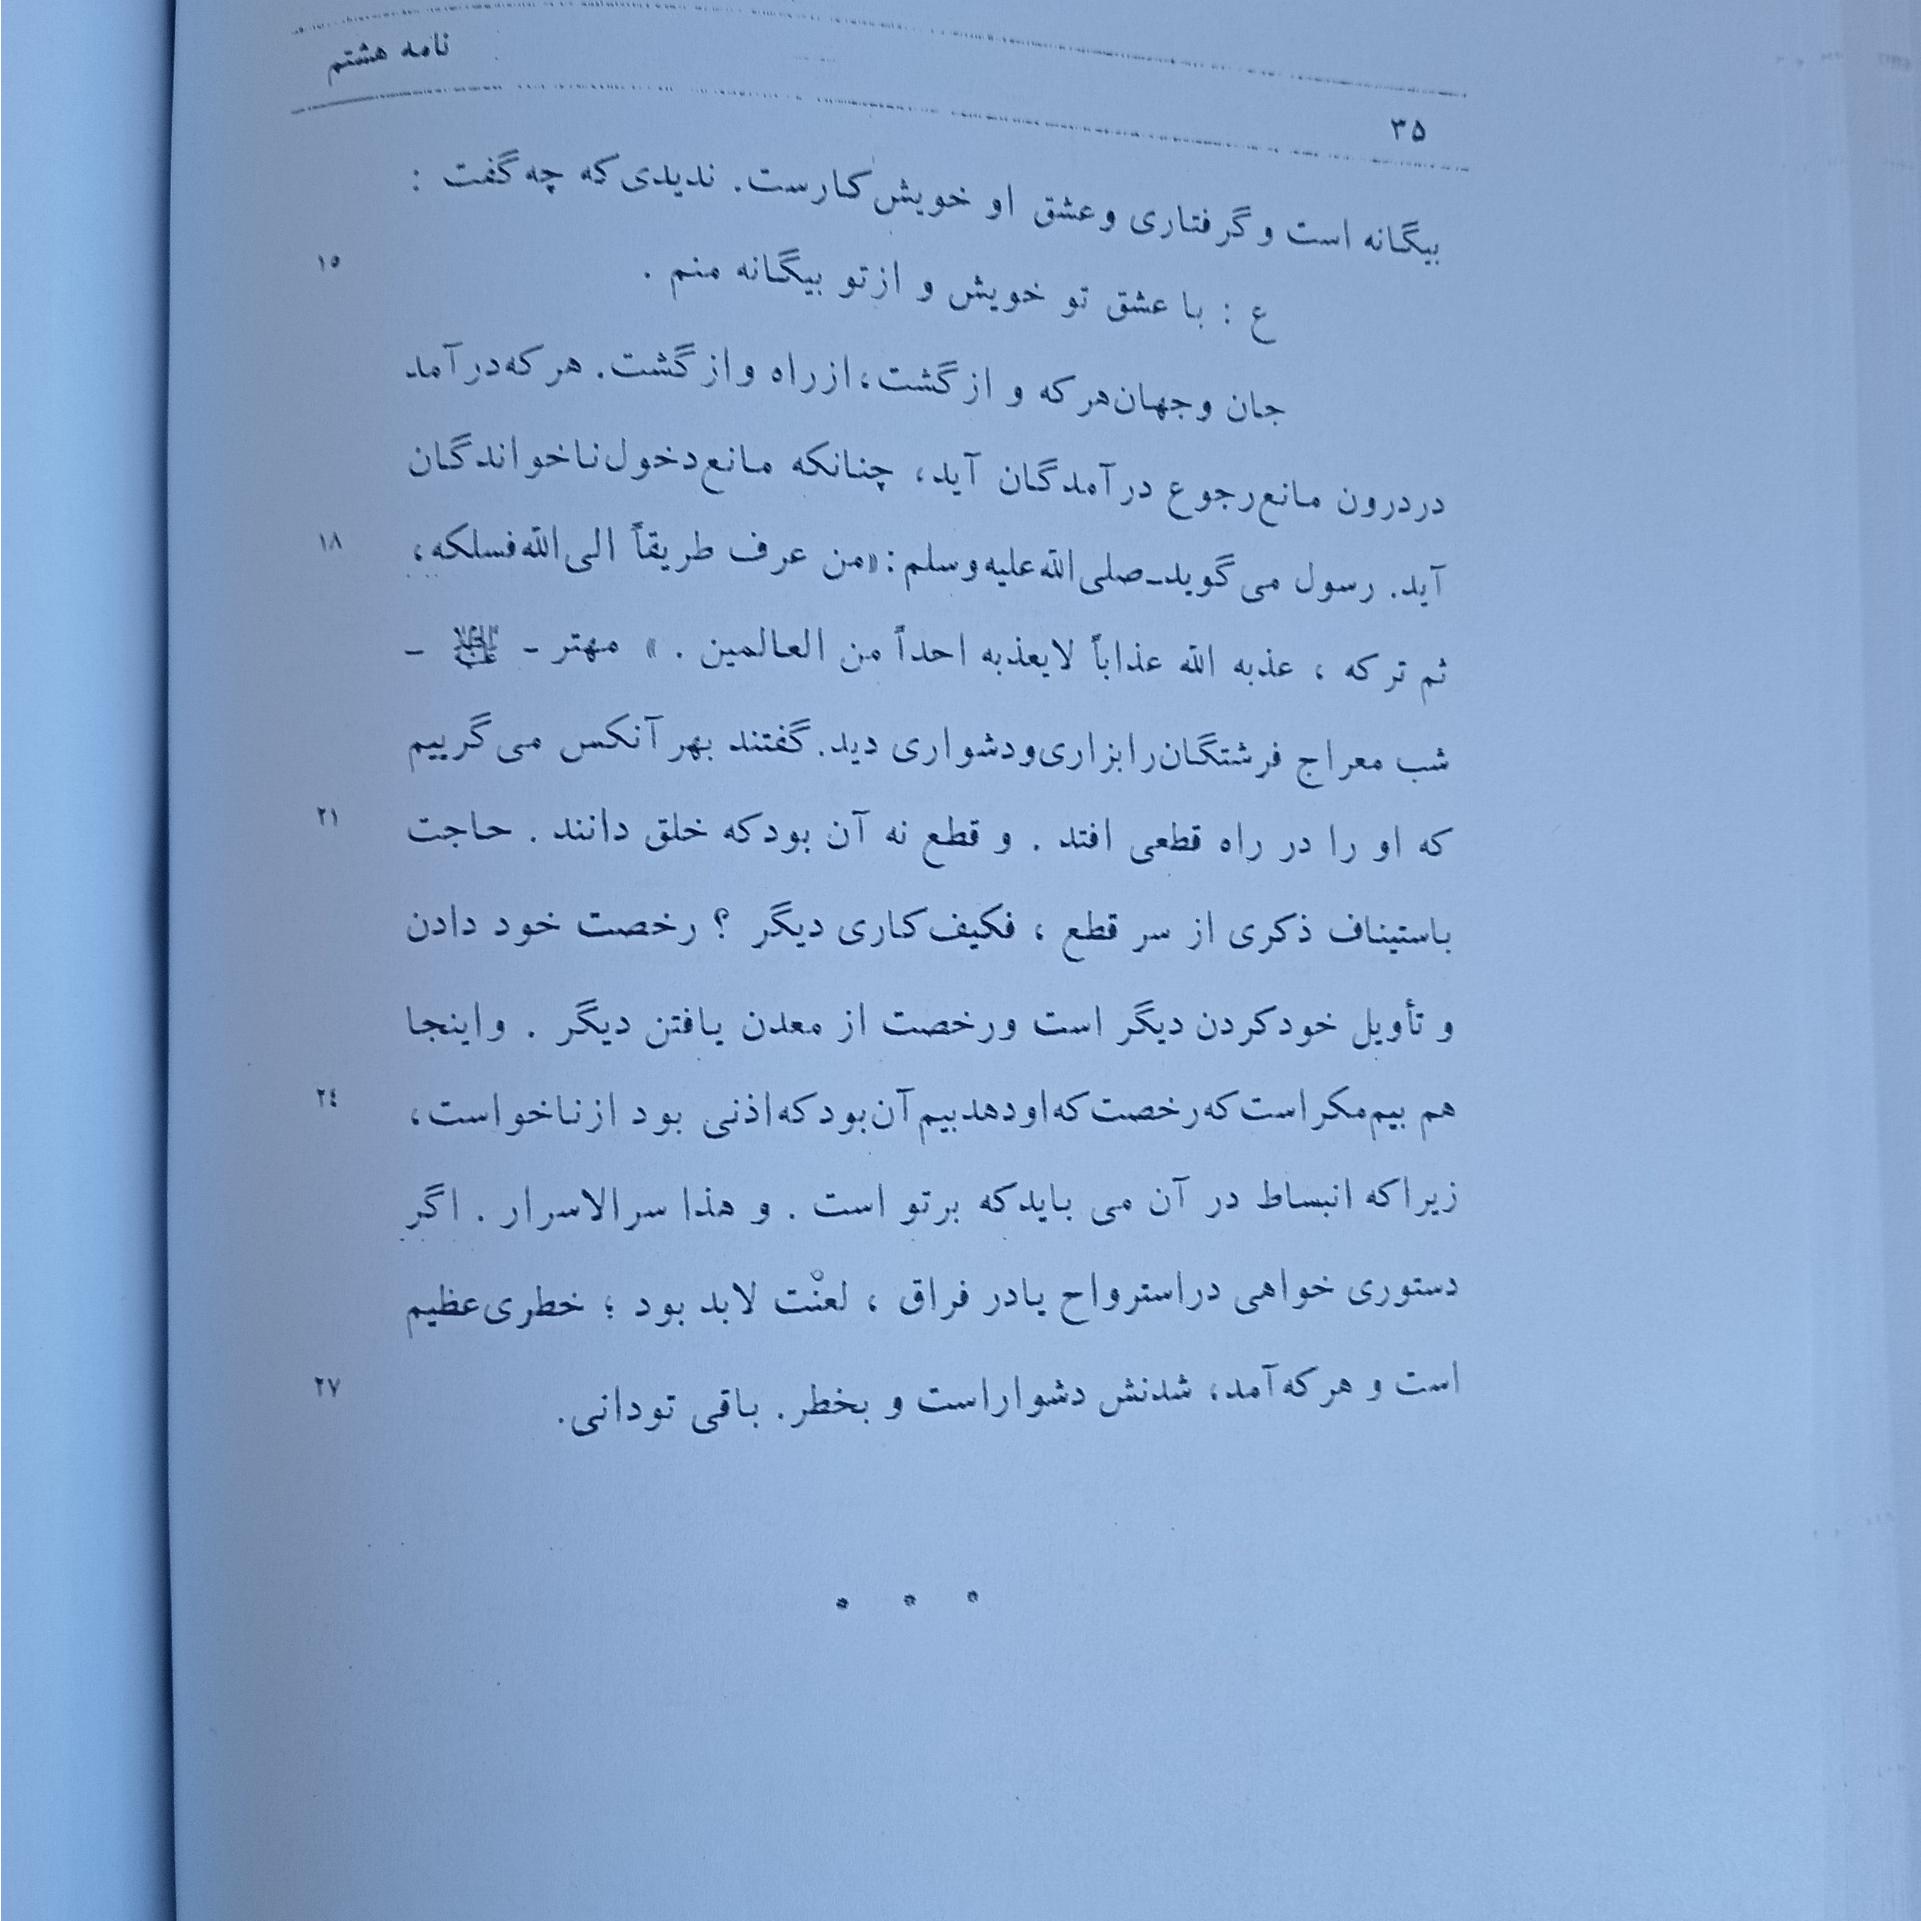 نامه هشتم
۳۵
بیگانه است و گرفتاری و عشق او خویش کارست. ندیدی که چه گفت :
۱۵
ع : با عشق تو خویش و از تو بیگانه منم .
جان و جهان هر که و از گشت، از راه و از گشت. هر که در آمد
در درون مانع رجوع در آمدگان آید، چنانکه مانع دخول ناخواندگان
۱۸
آید. رسول می گوید ـ صلی الله علیه و سلم : «من عرف طریقاً الی الله فسلکه،
ثم ترکه ، عذبه الله عذاباً لایعذبه احداً من العالمین . » مهتر - علیه السلام -
شب معراج فرشتگان را بزاری و دشواری دید. گفتند بهر آنکس می گرییم
۲۱
که او را در راه قطعی افتد . و قطع نه آن بود که خلق دانند . حاجت
باستیناف ذکری از سر قطع ، فکیف کاری دیگر ؟ رخصت خود دادن
و تأویل خود کردن دیگر است و رخصت از معدن یافتن دیگر . و اینجا
۲٤
هم بیم مکر است که رخصت که او دهد بیم آن بود که اذنی بود از ناخواست،
زیرا که انبساط در آن می باید که بر تو است . و هذا سر الاسرار . اگر
دستوری خواهی در استرواح یا در فراق ، لعنْت لابد بود ؛ خطری عظیم
۲۷
است و هر که آمد، شدنش دشوار است و بخطر. باقی تو دانی.